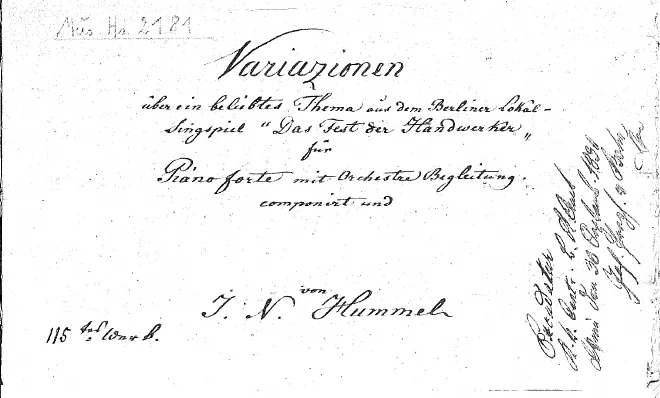 Mus. Hs. 2181
Variazionen
über ein beliebtes Thema aus dem Berliner Lokal-
Singspiel "Das Fest der Handwerker„
für
Piano forte mit Orchestre Begleitung.
componirt und
von
J. N. Hummel
115 tes Werk.